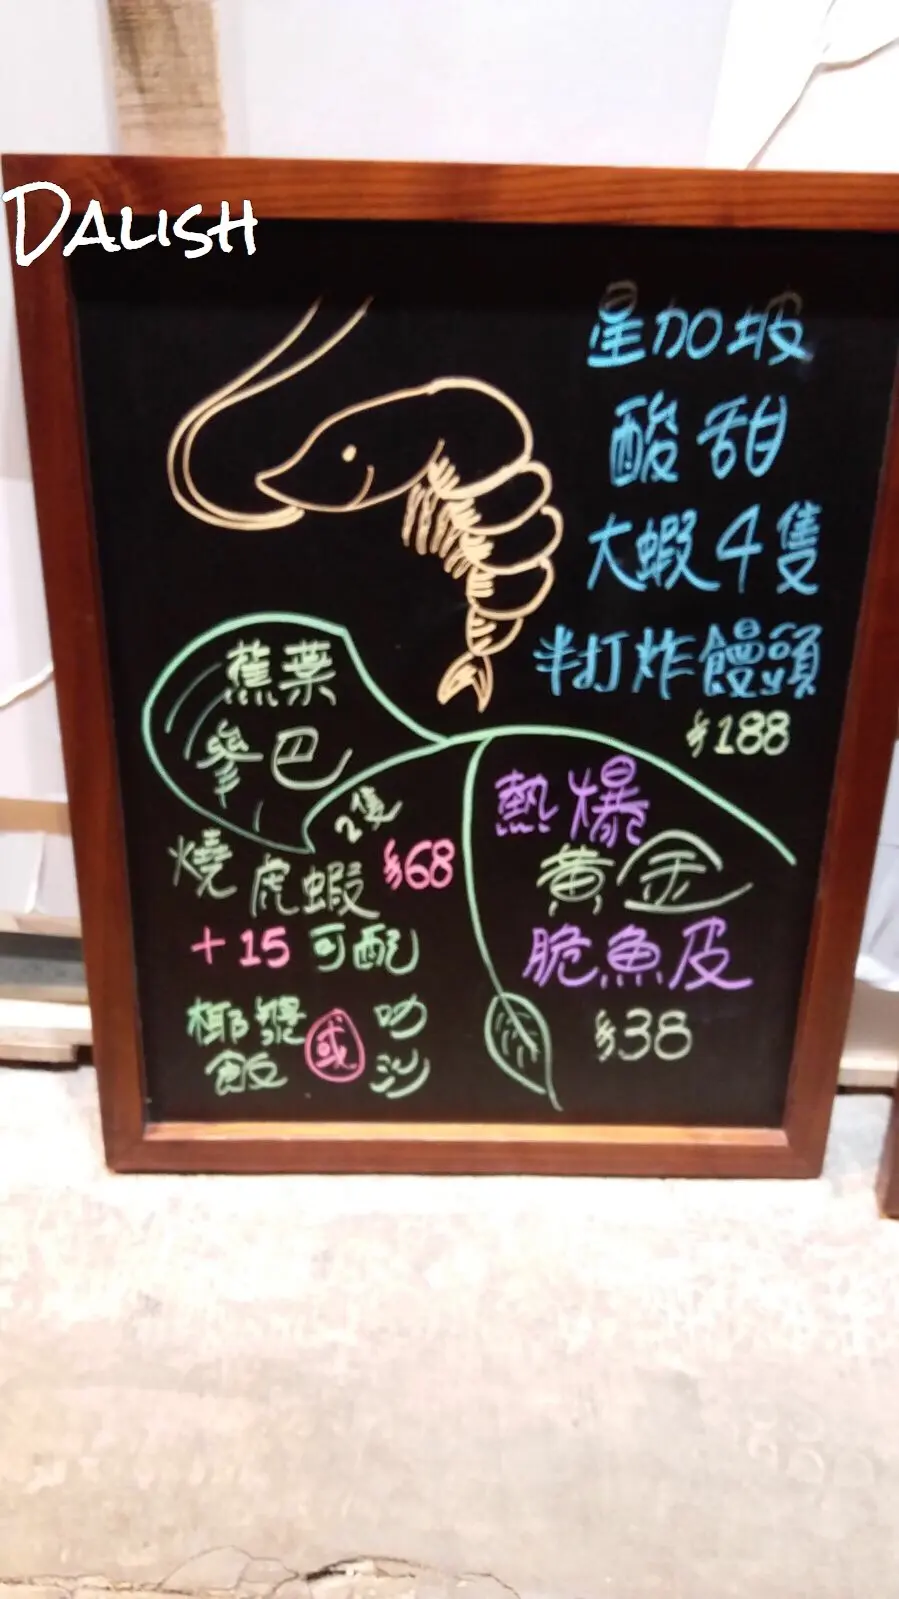 DALISH
星加坡
酸甜
大蝦4隻
半打炸饅頭
$188
蕉葉
參巴
2隻
燒虎蝦 $68
+15 可配
椰漿飯 或 叻沙
熱爆
黃金
脆魚皮
$38